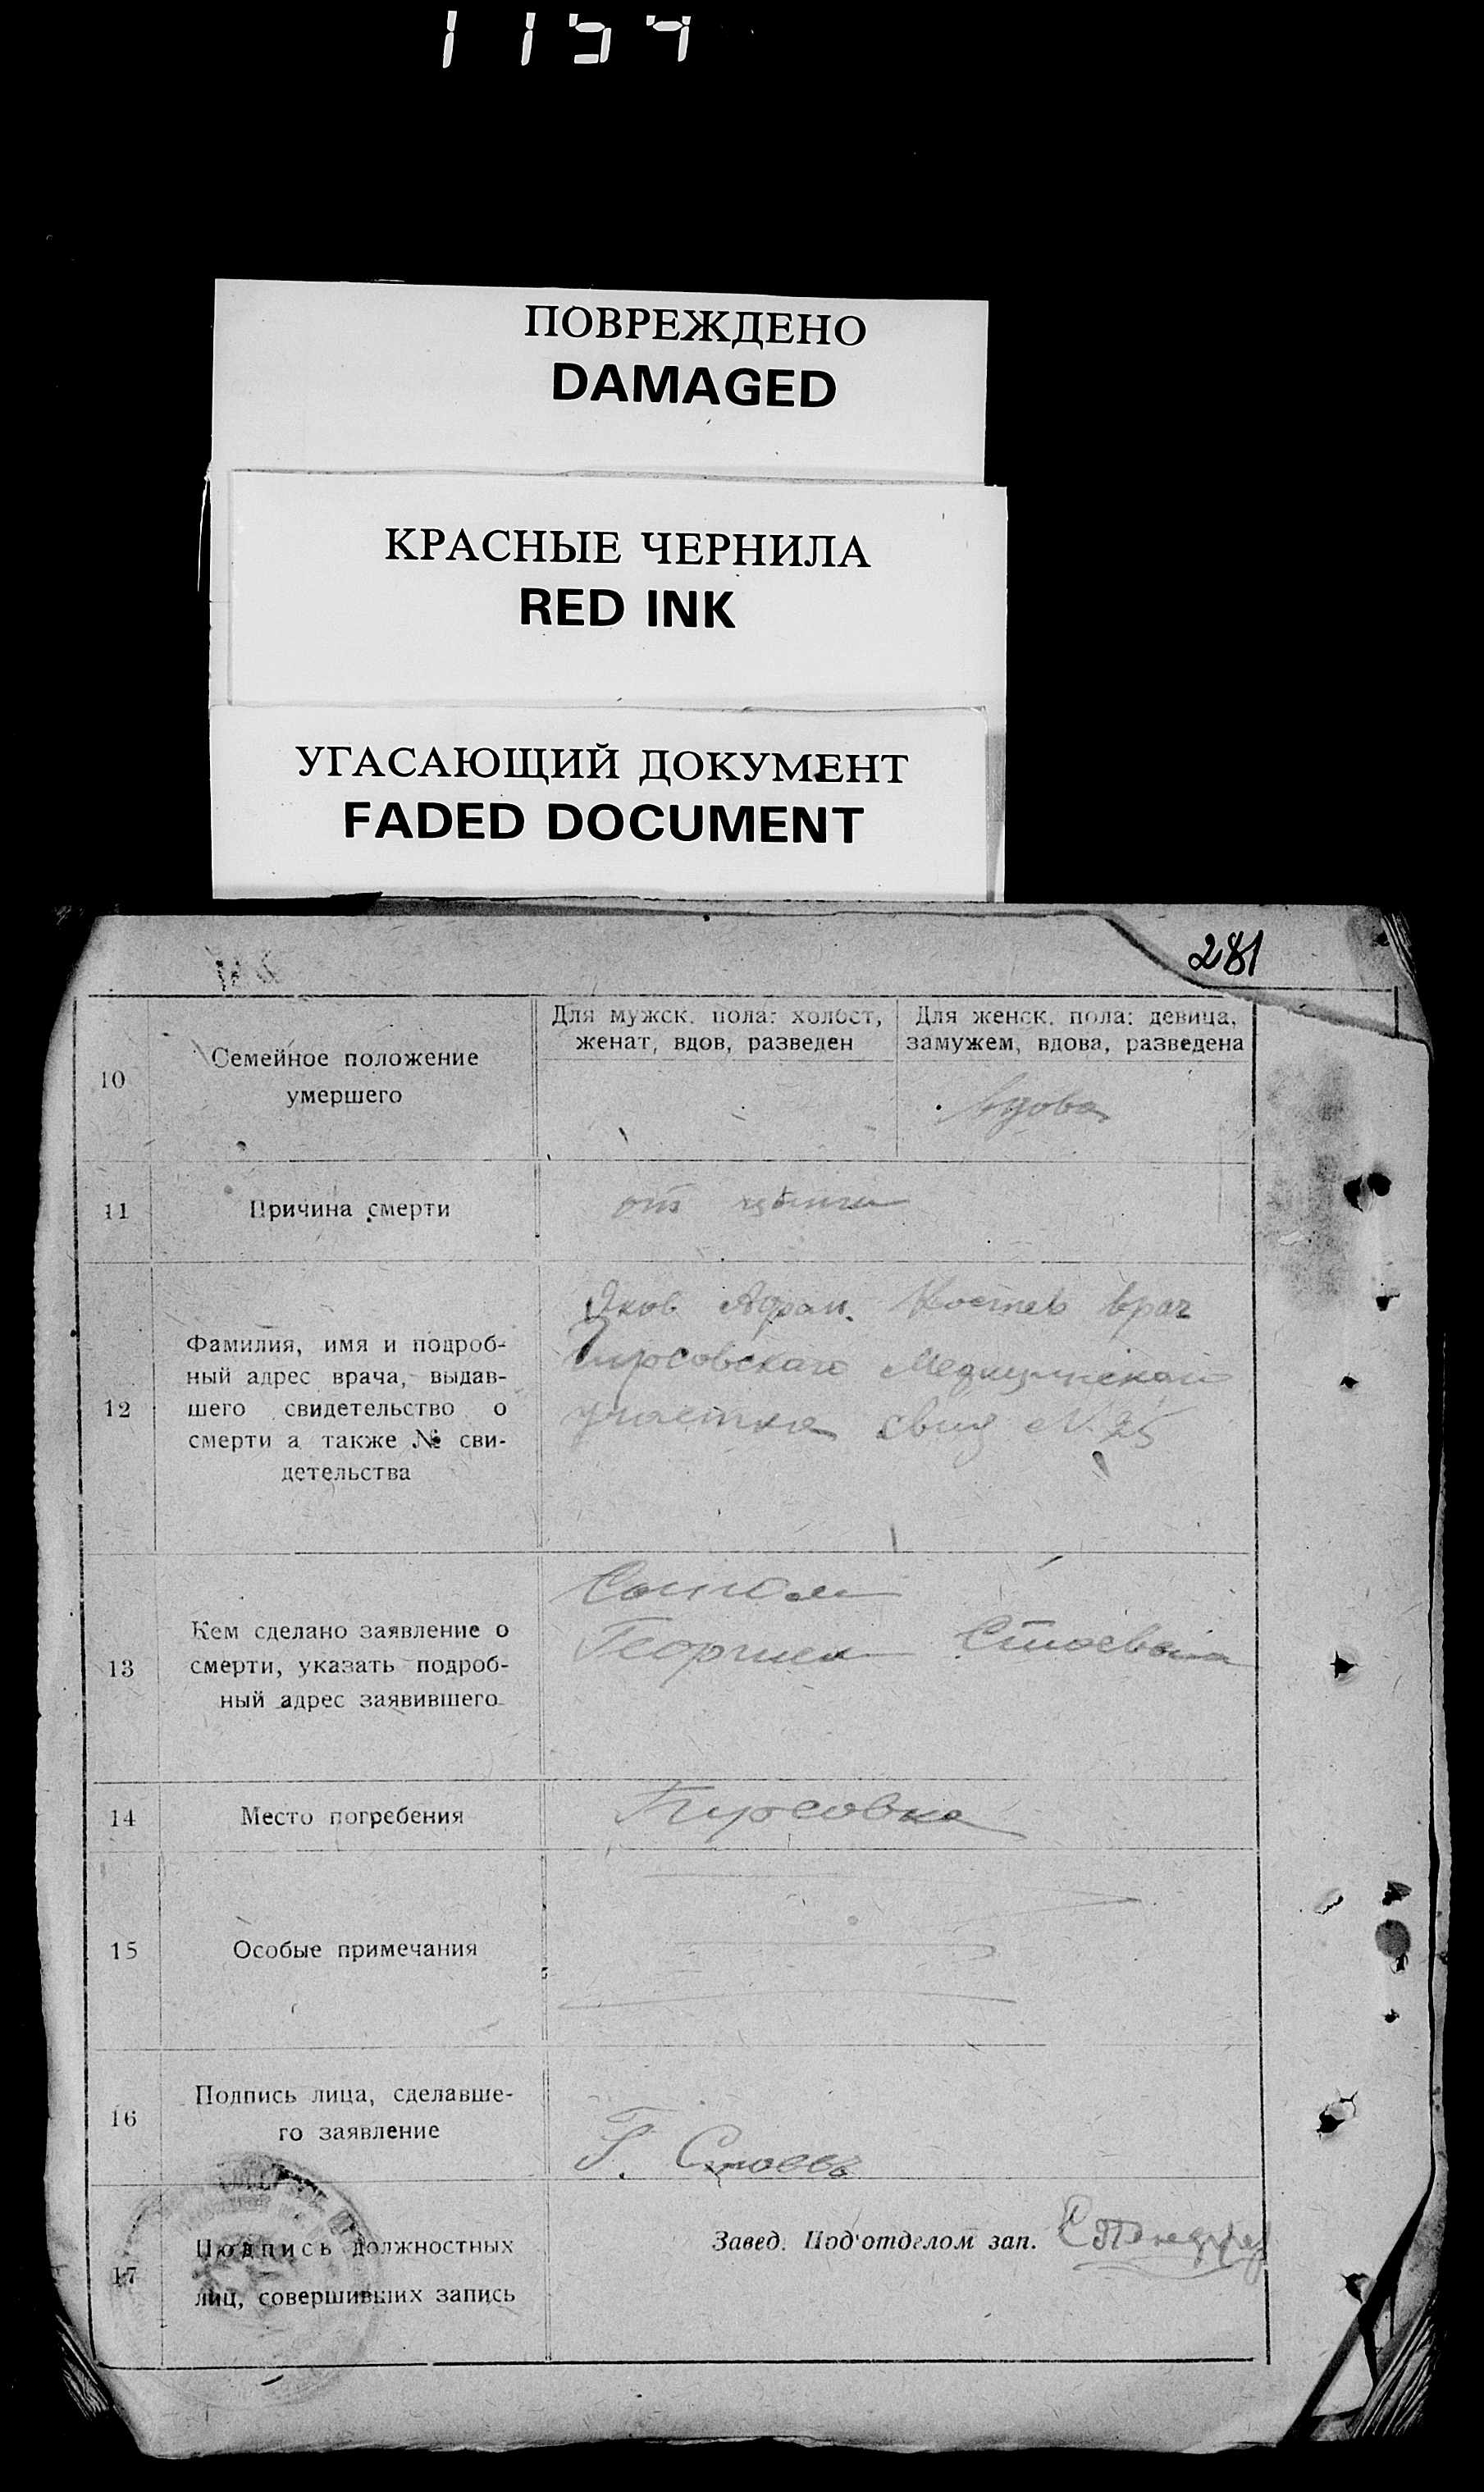 1154
ПОВРЕЖДЕНО
DAMAGED
КРАСНЫЕ ЧЕРНИЛА
RED INK
УГАСАЮЩИЙ ДОКУМЕНТ
FADED DOCUMENT
281
10
Семейное положение
умершего
Для мужск. пола: холост,
женат, вдов, разведен
Для женск. пола: девица,
замужем, вдова, разведена
Вдова
11
Причина смерти
от цынги
12
Фамилия, имя и подроб-
ный адрес врача, выдав-
шего свидетельство о
смерти а также № сви-
детельства
Яков Костев врач
Медицинскаго
участка свид №25
13
Кем сделано заявление о
смерти, указать подроб-
ный адрес заявившего
Сыном
Георгием Стоевым
14
Место погребения
15
Особые примечания
16
Подпись лица, сделавше-
го заявление
Г. Стоевъ
17
Подпись должностных
лиц, совершивших запись
Завед. Под'отделом зап.